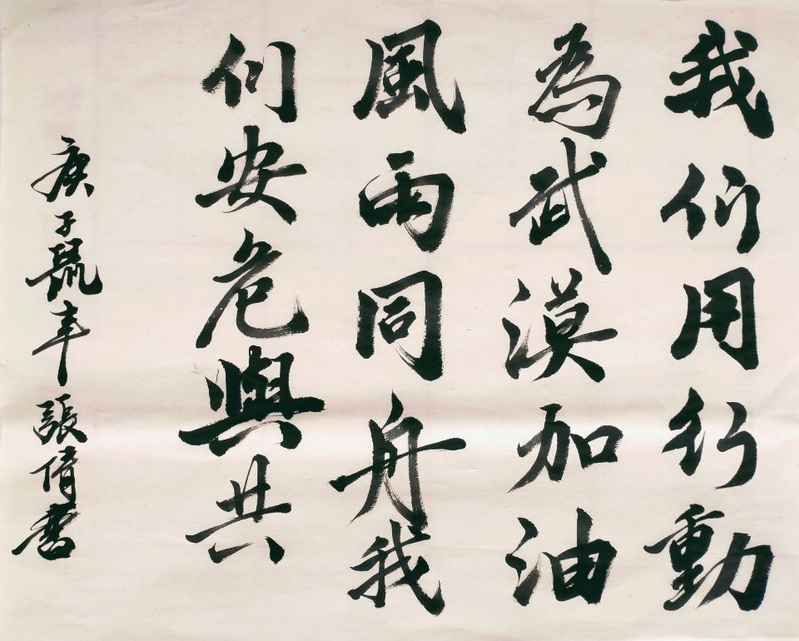 我们用行動
為武漠加油
風雨同舟我
们安危與共
庚子鼠年張倩書